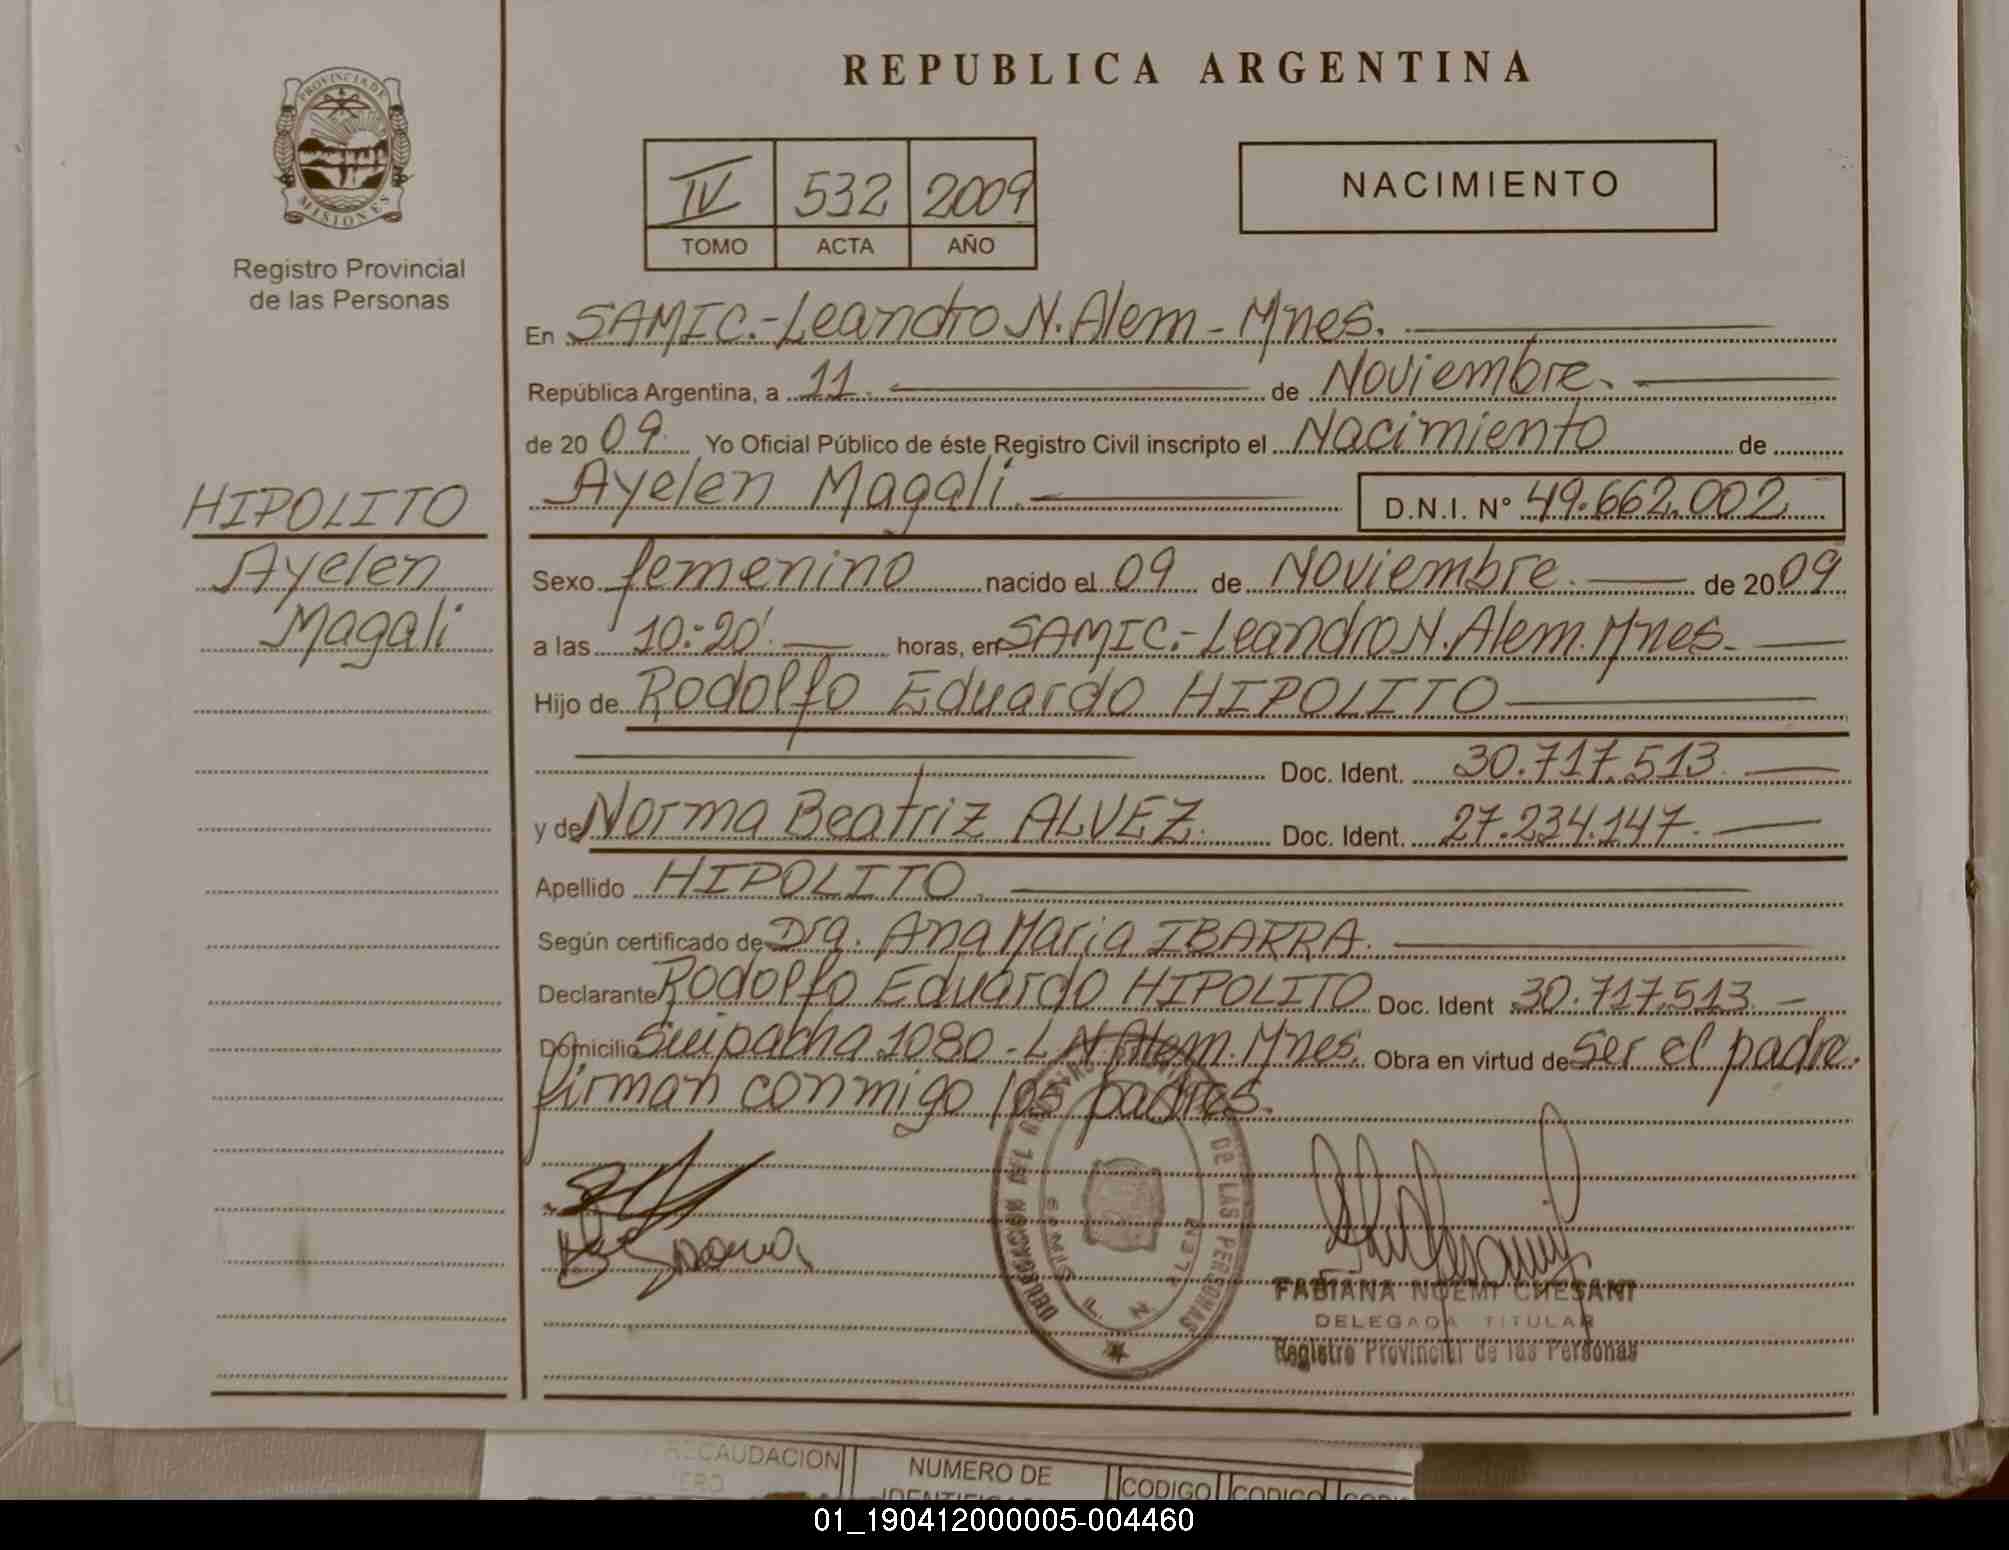 PROVINCIA DE
MISIONES
Registro Provincial
de las Personas
HIPOLITO
Ayelen
Magali
REPUBLICA ARGENTINA
IV 532 2009
TOMO ACTA AÑO
NACIMIENTO
En SAMIC.-Leandro N. Alem - Mnes.
República Argentina, a 11. de Noviembre.
de 20 09. Yo Oficial Público de éste Registro Civil inscripto el Nacimiento de
Ayelen Magali. D.N.I. Nº 49.662.002
Sexo femenino nacido el 09 de Noviembre. de 2009
a las 10:20'. horas, en SAMIC.-Leandro N. Alem. Mnes.
Hijo de Rodolfo Eduardo HIPOLITO
Doc. Ident. 30.717.513.
y de Norma Beatriz ALVEZ. Doc. Ident. 27.234.147.
Apellido HIPOLITO.
Según certificado de Dra. Ana Maria IBARRA.
Declarante Rodolfo Eduardo HIPOLITO Doc. Ident 30.717.513.
Domicilio Suipacha 1080 - L N Alem. Mnes. Obra en virtud de ser el padre.
firman conmigo los padres.
DELEGACION DEL DE LAS PERSONAS
FABIANA NOEMI CHESANI
DELEGADA TITULAR
Registro Provincial de las Personas
RECAUDACION NUMERO DE CODIGO CODIGO
01_190412000005-004460